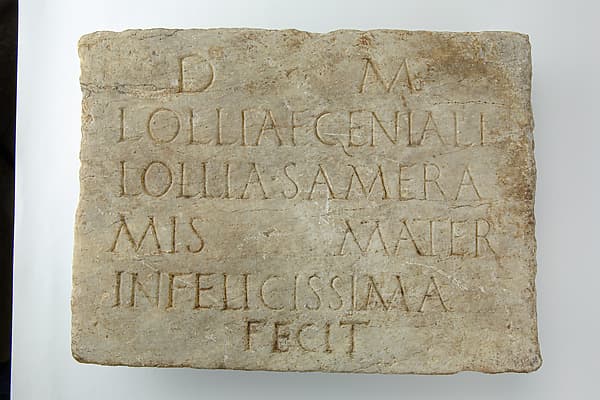 D M
LOLLIAE GENIALI
LOLLIA · SAMERA
MIS MATER
INFELICISSIMA
FECIT